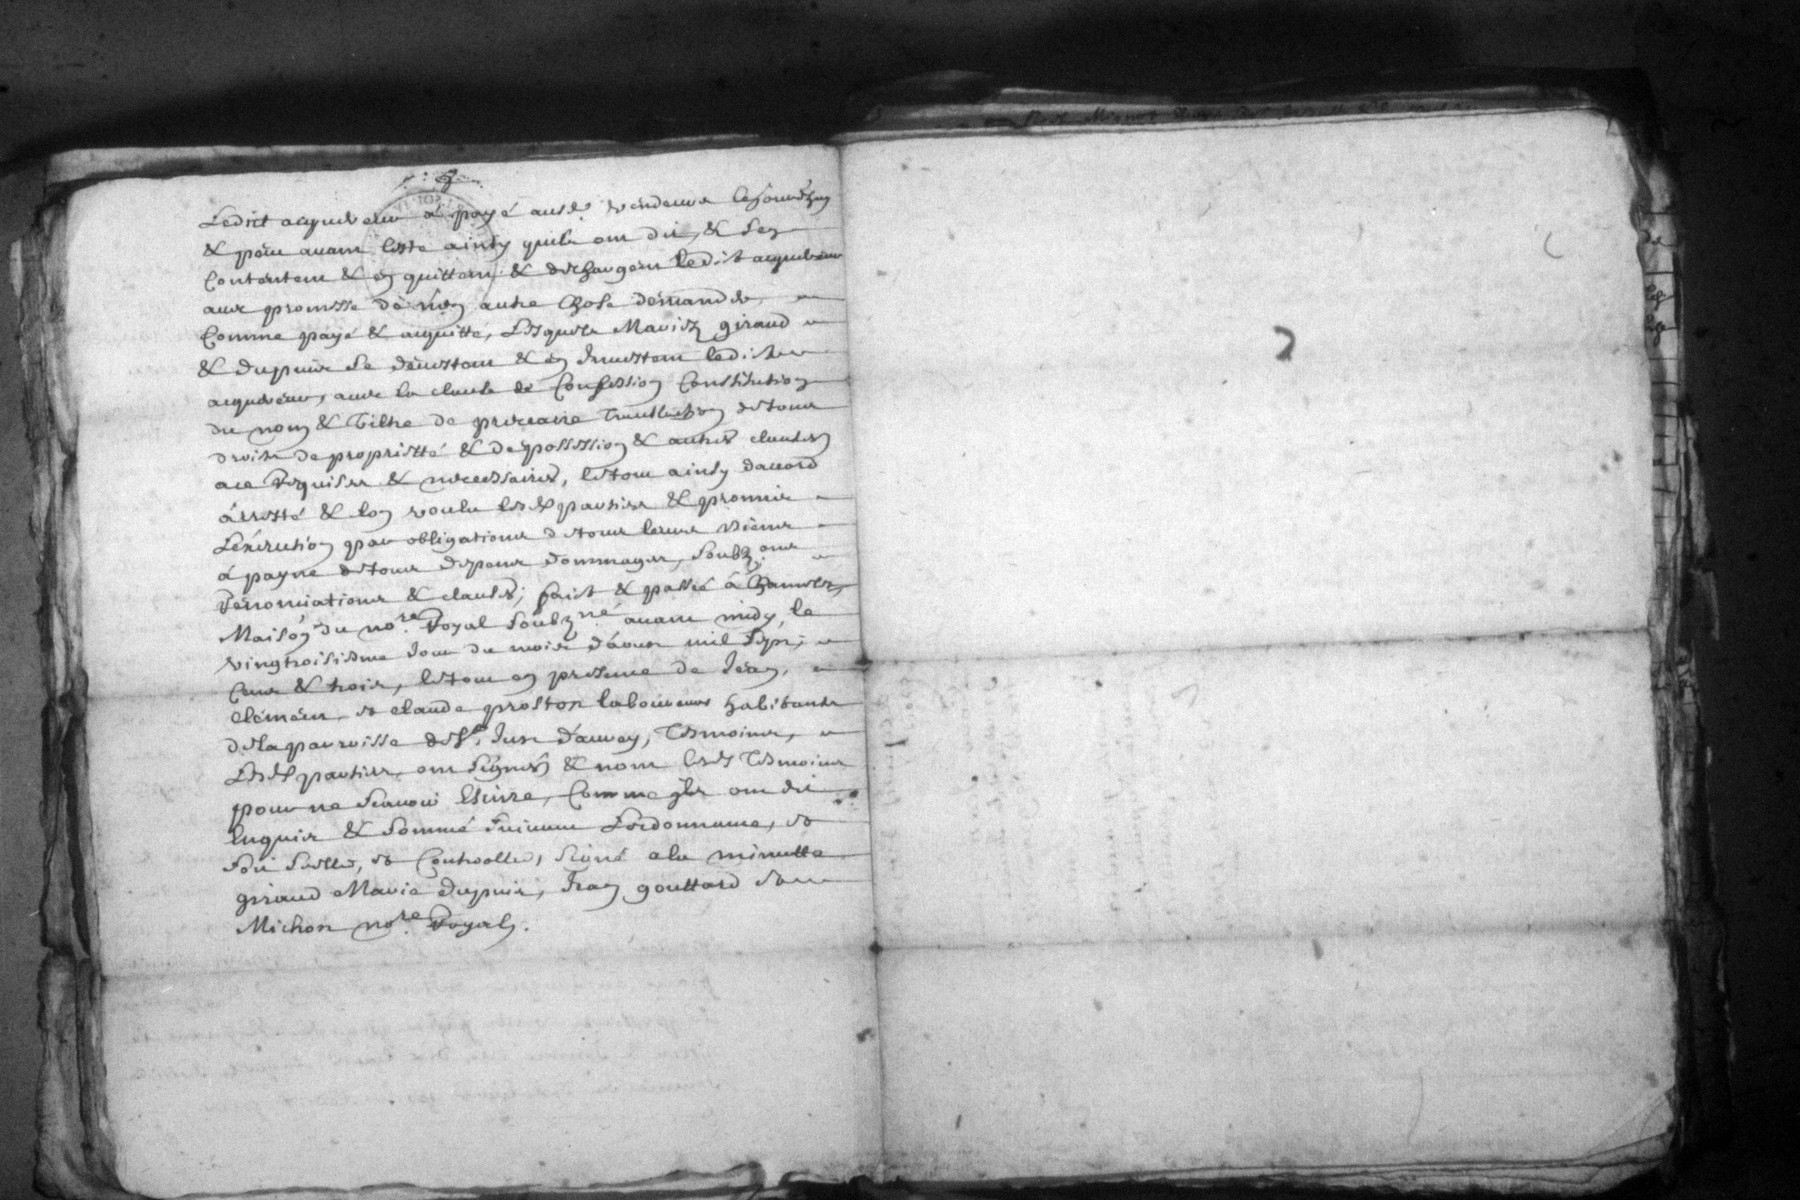 Ledict acquereur a payé ausd. vendeurs cejourdhuy
& peu avant ceste ainsy quils ont dit, & sen
contentent & en quittent & deschargent ledit acquereur
avec promesse de rien autre chose demander,
comme payé & acquitté, Lesquels Mariez giraud
& dupuis se devestent & en Investent ledit
acquereur, avec la clause de Confession Constitution
du nom & tiltre de precaire Translation de tous
droits de proprietté & de possession & autres clauses
a ce Requises & necessaires, le tout ainsy daccord
arresté & lon voulu lesd. parties & promis
Lexécution par obligations de tous leurs biens
à payne de tous depens dommages, soubz.ons
Renonciations & clauses; faict & passé à
Maison du no.re Royal soubz.né avant midy, le
vingtroisieme jour du mois d'avril mil sept
cens & trois, le tout en presence de Jean
Clément & Claude proston laboureurs habitants
de la parroisse de St. Just d'avray, Tesmoins,
Lesd. parties ont signés & non lesd Tesmoins
pour ne scavoir Escrire, Comme ils ont dit
Enquis & sommé suivant Lordonnance, &
soit scellé, & Controllé, signé a la minutte
giraud Marie dupuis, Jean gouttard &
Michon no.re Royal.
2